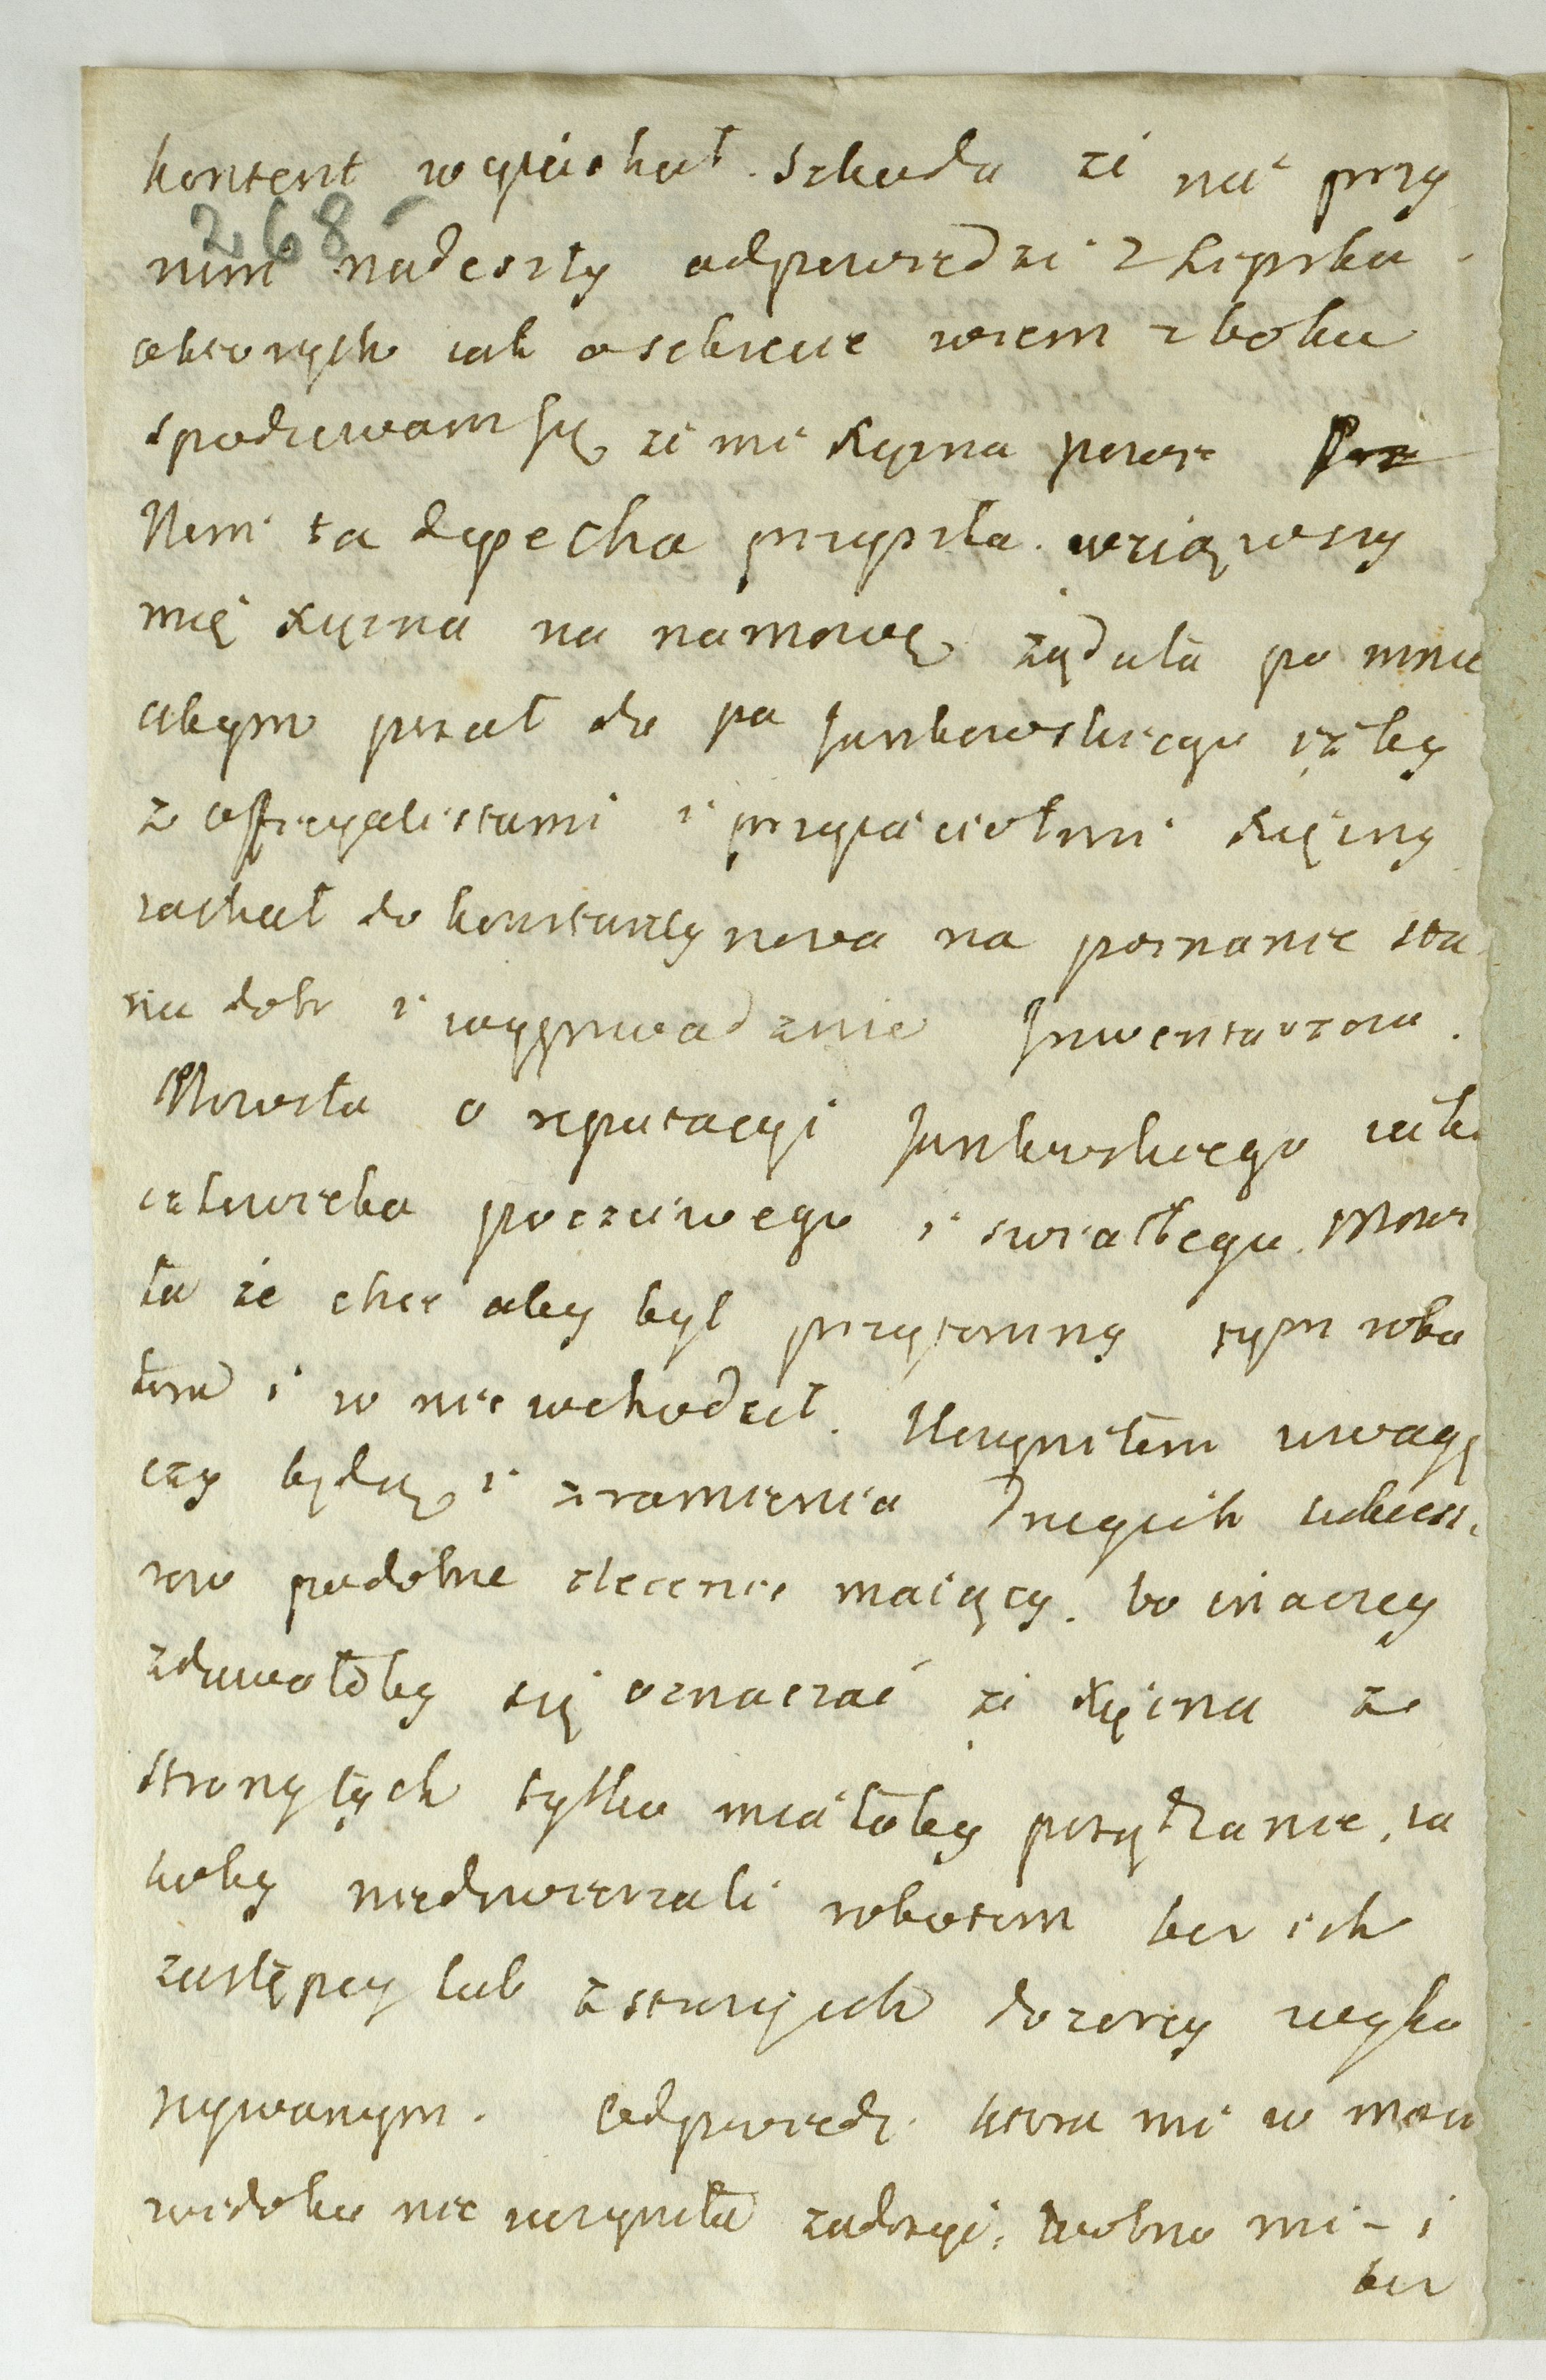 kontent wyiechał. Szkoda że nie przy
268
nim nadeszły odpowiedzi z Lipska.
o ktorych iak osobiscie wiem z boku
spodziewam się że mi Xiężna powie
Nim ta depecha przyszła. wziąwszy
mię Xiężna na namowę żądała po mnie
abym pisał do pa Jankowskiego iżby
z officyalistami i przyiaciołmi Xiężny
iachał do Konstantynowa na poznanie sta
nu dobr i wyprowadzenie Inwentarzow.
Mowiła o reputacyi Jankowskiego iako
człowieka poczciwego i swiatłego. Mowi
ła że chce aby był przytomny tym robo
tom i w nie wchodził. Uczyniłem uwagę
czy będą i z ramienia drugich sukcess.
row podobne zlecenie maiący. bo inaczey
zdawałoby się oznaczać że Xiężna ze
strony tych tylko miałaby pożądanie, ia
koby niedowierzali robotom bez ich
zastępcy lub z strony ich dozorcy wyko
nywanym. Odpowiedz ktora mi w moim
widoku nie uczyniła zadosyć. wolno mi - i
bez